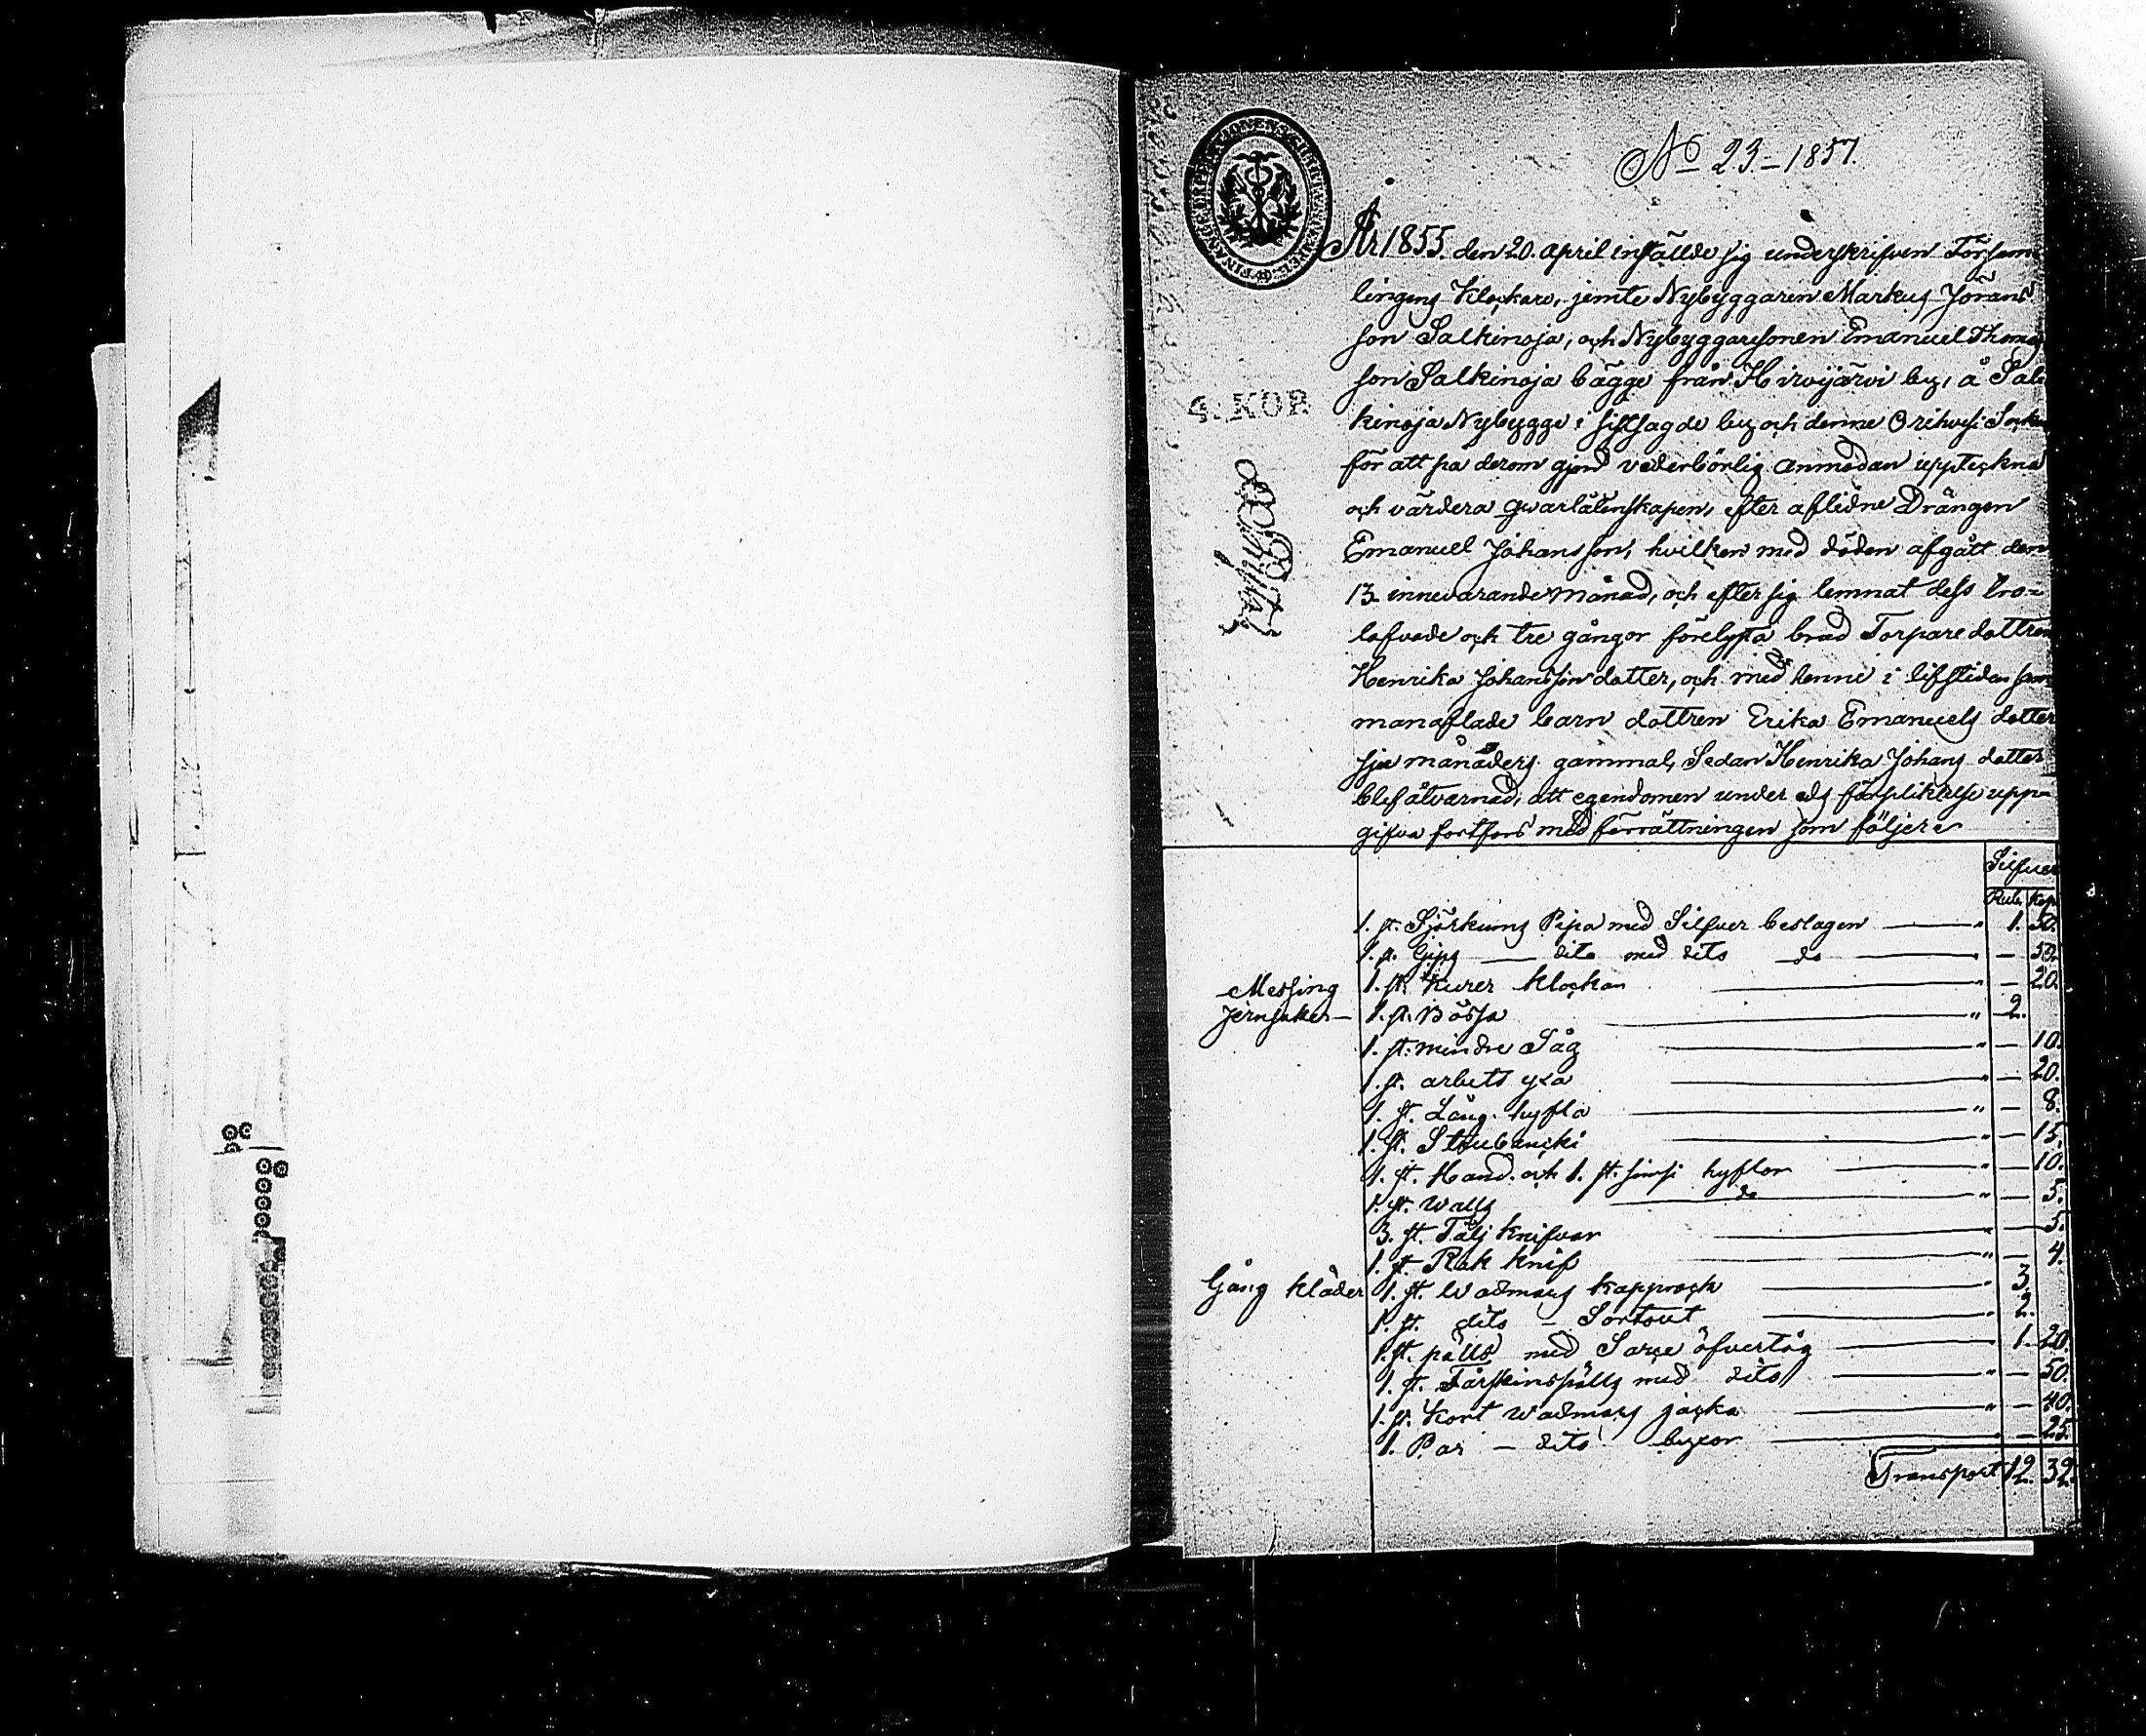 No 23-1857.
År 1855. den 20. april instälde sig underskrifven Försam
lingens Klockare, jemte Nybyggaren Markus Jörans
son Salkinoja, och Nybyggaresonen Emanuel Thomas
son Salkinoja bägge från Hirvijärvi by, å Sal
kinoja Nybygge i sistsagde by och denne Orihvesi Sockn
för att på derom gjord vederbörlig anmodan uppteckna
och värdera qvarlåtenskapen, efter aflidne Drängen
Emanuel Johansson, hvilken med döden afgått den
13 innevarande månad, och efter sig lemnat dess tro=
lofvade och tre gångor förelysta brud Torpare dottren
Henrika Johansson dotter, och med henne i lifstiden sam
manaflade barn dottren Erika Emanuels dotter
sju månaders gammal, Sedan Henrika Johans dotter
blef åtvarnad, att egendomen under eds förpliktelse upp=
gifva fortfors med förrättningen som följer
4. KOP.
Silfver
Rub. Kop.
1. st. Sjörkums Pipa med Silfver beslagen " 1. 50.
1. st. Gips dito med dito do " — 50.
Messing 1. st. Kurer klockan " — 20.
Jernsaker — 1. st. Bössa " 2.
1. st. mindre Såg " — 10.
1. st. arbets yxa " — 20.
1. st. Lång hyfla " — 8.
1. st. Stoubancki " — 15.
1. st. Hand. och 1. st. simsi hyflor " — 10.
1. st. Walls do " — 5.
3. st. Tälj knifvar " — 5.
1. st. Rak knif " — 4.
Gång kläder 1. st. Wadmars kapprock " 3.
1. st. dito — Sortout " 2.
1. st. pälls med Sarce öfvertåg " 1. 20.
1. st. Fårskinspälls med dito " — 50.
1. st. Kort wadmars jacka " — 40.
1. Par — dito byxor — 25.
Transport 12. 32.